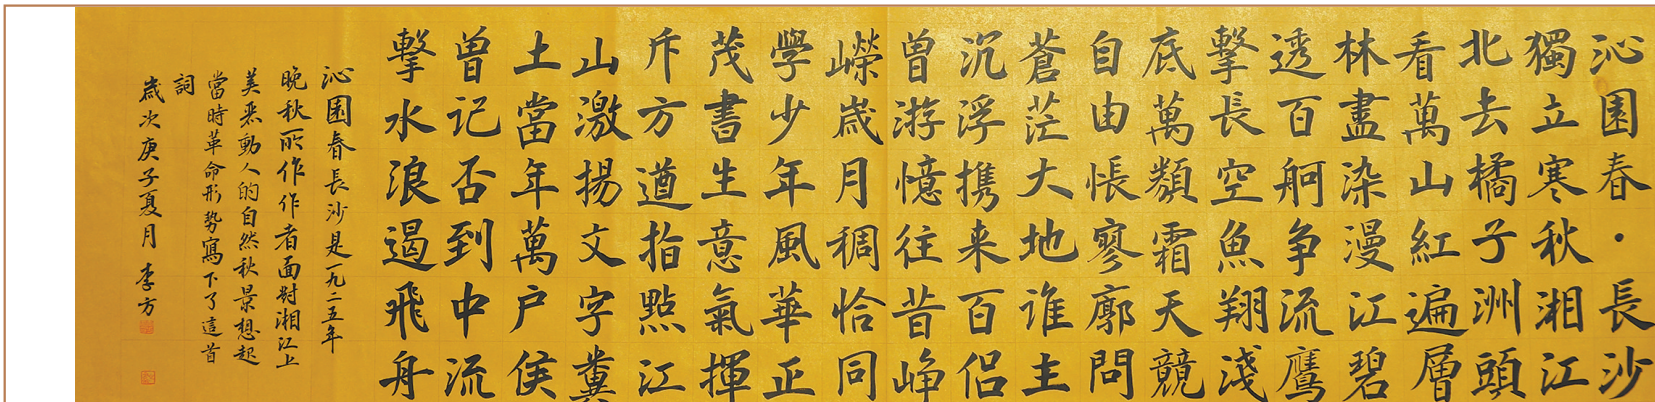 沁園春·長沙
獨立寒秋湘江
北去橘子洲頭
看萬山紅遍層
林盡染漫江碧
透百舸争流鷹
擊長空魚翔淺
底萬類霜天競
自由悵寥廓問
蒼茫大地谁主
沉浮携来百侣
曾游憶往昔峥
嶸歲月稠恰同
學少年風華正
茂書生意氣揮
斥方遒指點江
山激揚文字糞
土當年萬户侯
曾记否到中流
擊水浪遏飛舟
沁園春長沙是一九二五年
晚秋所作作者面對湘江上
美丽動人的自然秋景想起
當時革命形势寫下了這首
詞
歲次庚子夏月 李方